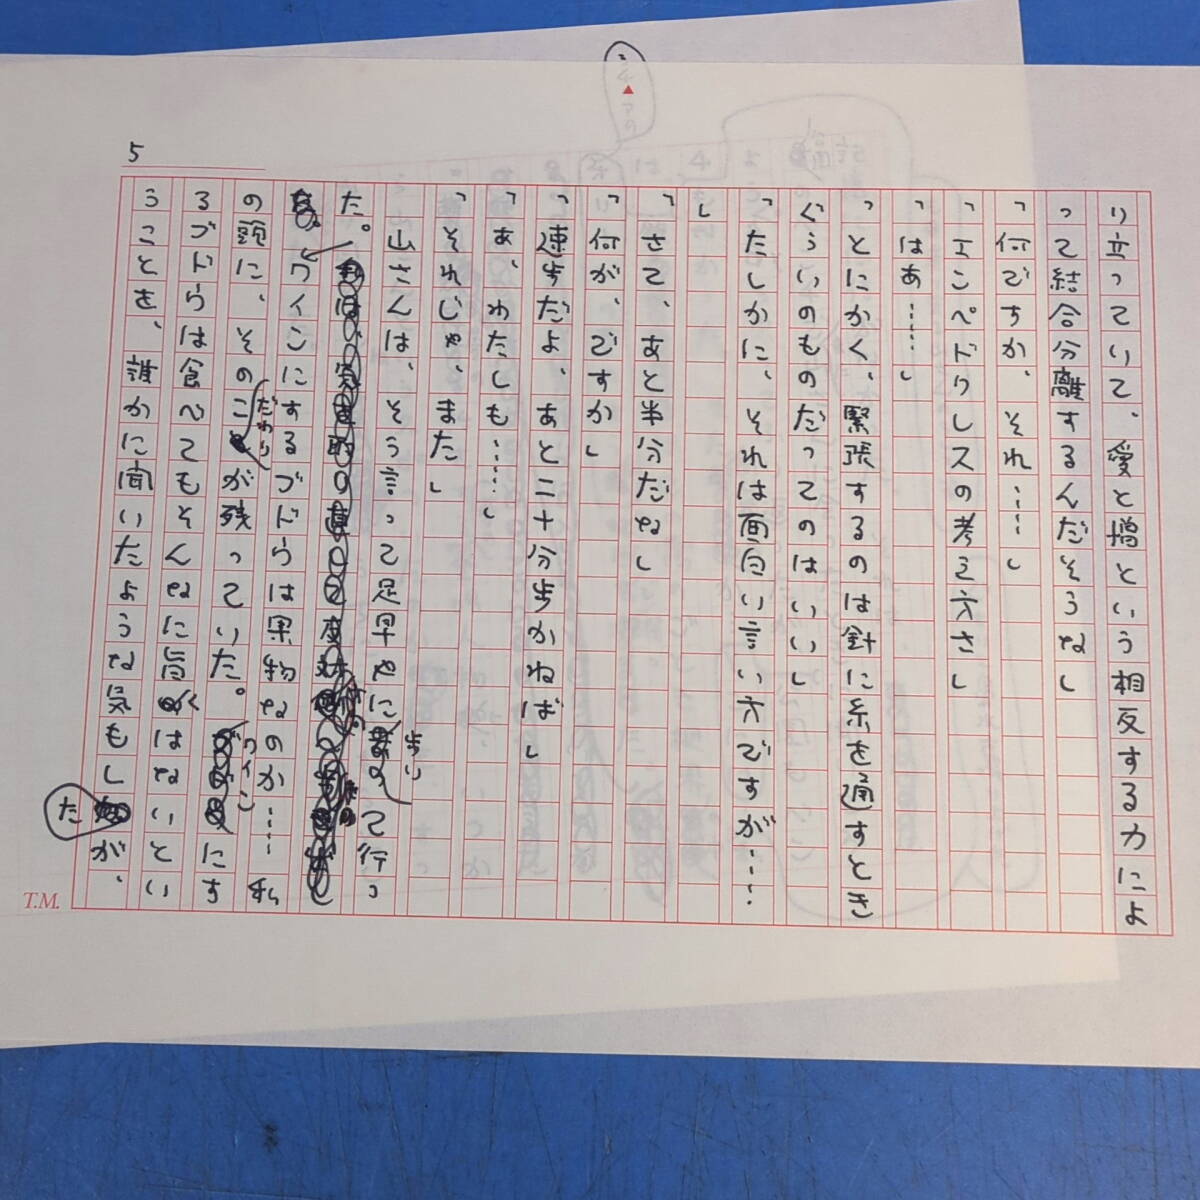 5
り立っていて、愛と憎という相反する力によ
って結合分離するんだそうな」
「何ですか、それ……」
「エンペドクレスの考え方さ」
「はあ……」
「とにかく、緊張するのは針に糸を通すとき
ぐらいのものだってのはいい」
「たしかに、それは面白い言い方ですが……
」
「さて、あと半分だな」
「何が、ですか」
「速歩だよ、あと二十分歩かねば」
「あ、わたしも……」
「それじゃ、また」
山さんは、そう言って足早やに歩いて行っ
た。
ワインにするブドウは果物なのか……私
の頭に、そのこだわりが残っていた。ワインにす
るブドウは食べてもそんなに旨くはないとい
うことを、誰かに聞いたような気もしたが、
T.M.